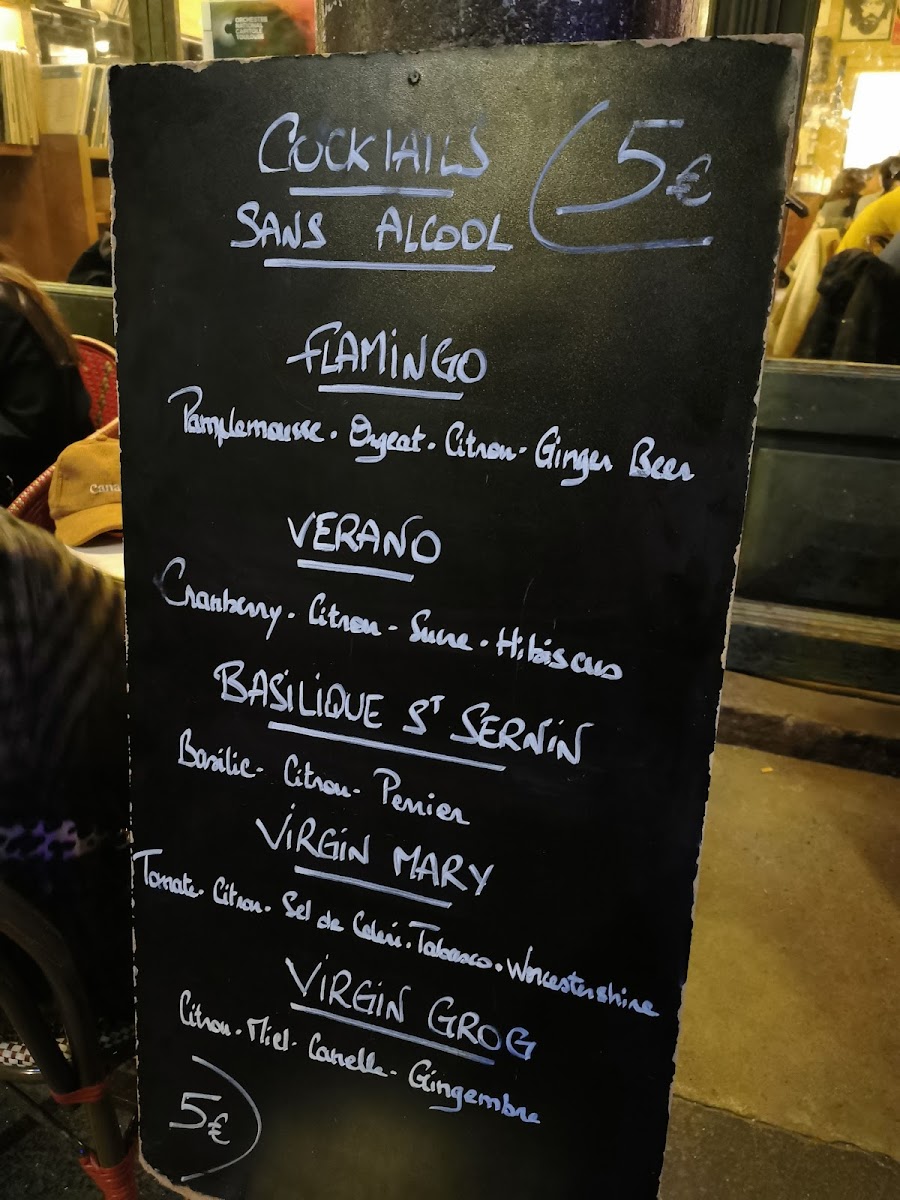 ORCHESTRE
NATIONAL
CAPITOLE
TOULOUSE
COCKTAILS
SANS ALCOOL
5€
FLAMINGO
Pamplemousse. Orgeat. Citron. Ginger Beer
Cana
VERANO
Cranberry. Citron. Sucre. Hibiscus
BASILIQUE ST SERNIN
Basilic. Citron. Perrier
VIRGIN MARY
Tomate. Citron. Sel de Celeri. Tabasco. Worcestershire
VIRGIN GROG
Citron. Miel. Canelle. Gingembre
5€